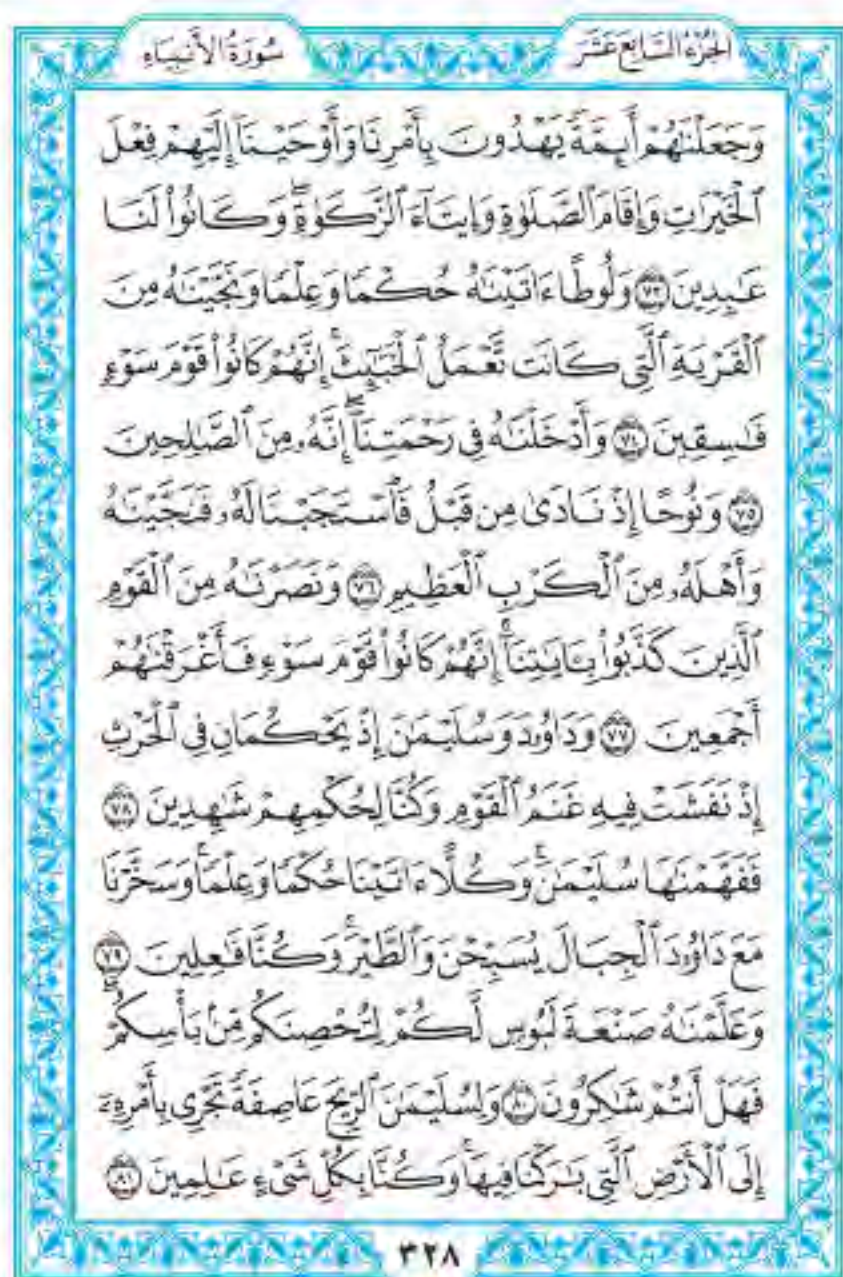 الجُزْءُ السَّابِعَ عَشَرَ
سُورَةُ الأَنبِيَاءِ
وَجَعَلْنَٰهُمْ أَئِمَّةً يَهْدُونَ بِأَمْرِنَا وَأَوْحَيْنَآ إِلَيْهِمْ فِعْلَ
ٱلْخَيْرَٰتِ وَإِقَامَ ٱلصَّلَوٰةِ وَإِيتَآءَ ٱلزَّكَوٰةِۖ وَكَانُوا۟ لَنَا
عَٰبِدِينَ ٧٣ وَلُوطًا ءَاتَيْنَٰهُ حُكْمًا وَعِلْمًا وَنَجَّيْنَٰهُ مِنَ
ٱلْقَرْيَةِ ٱلَّتِى كَانَت تَّعْمَلُ ٱلْخَبَٰٓئِثَۚ إِنَّهُمْ كَانُوا۟ قَوْمَ سَوْءٍ
فَٰسِقِينَ ٧٤ وَأَدْخَلْنَٰهُ فِى رَحْمَتِنَآۖ إِنَّهُۥ مِنَ ٱلصَّٰلِحِينَ
٧٥ وَنُوحًا إِذْ نَادَىٰ مِن قَبْلُ فَٱسْتَجَبْنَا لَهُۥ فَنَجَّيْنَٰهُ
وَأَهْلَهُۥ مِنَ ٱلْكَرْبِ ٱلْعَظِيمِ ٧٦ وَنَصَرْنَٰهُ مِنَ ٱلْقَوْمِ
ٱلَّذِينَ كَذَّبُوا۟ بِـَٔايَٰتِنَآۚ إِنَّهُمْ كَانُوا۟ قَوْمَ سَوْءٍ فَأَغْرَقْنَٰهُمْ
أَجْمَعِينَ ٧٧ وَدَاوُۥدَ وَسُلَيْمَٰنَ إِذْ يَحْكُمَانِ فِى ٱلْحَرْثِ
إِذْ نَفَشَتْ فِيهِ غَنَمُ ٱلْقَوْمِ وَكُنَّا لِحُكْمِهِمْ شَٰهِدِينَ ٧٨
فَفَهَّمْنَٰهَا سُلَيْمَٰنَۚ وَكُلًّا ءَاتَيْنَا حُكْمًا وَعِلْمًاۚ وَسَخَّرْنَا
مَعَ دَاوُۥدَ ٱلْجِبَالَ يُسَبِّحْنَ وَٱلطَّيْرَۚ وَكُنَّا فَٰعِلِينَ ٧٩
وَعَلَّمْنَٰهُ صَنْعَةَ لَبُوسٍ لَّكُمْ لِتُحْصِنَكُم مِّنۢ بَأْسِكُمْۖ
فَهَلْ أَنتُمْ شَٰكِرُونَ ٨٠ وَلِسُلَيْمَٰنَ ٱلرِّيحَ عَاصِفَةً تَجْرِى بِأَمْرِهِۦٓ
إِلَى ٱلْأَرْضِ ٱلَّتِى بَٰرَكْنَا فِيهَاۚ وَكُنَّا بِكُلِّ شَىْءٍ عَٰلِمِينَ ٨١
٣٢٨